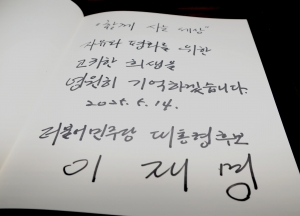 "함께 사는 세상"
자유와 평화를 위한
고귀한 희생을
영원히 기억하겠습니다.
2025. 5. 14.
더불어민주당 대통령후보
이 재 명